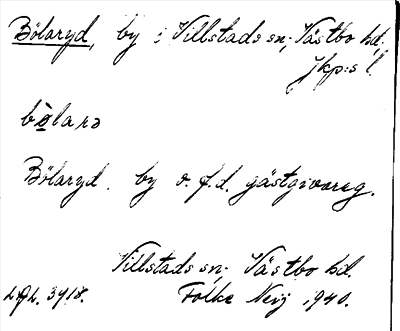 Bölaryd, by i Villstads sn, Västbo hd,
jkp:s l.
bø̀larə
Bölaryd. by o. f.d. gästgivareg.
Villstads sn. Västbo hd.
3918. Folke Neij 1940.